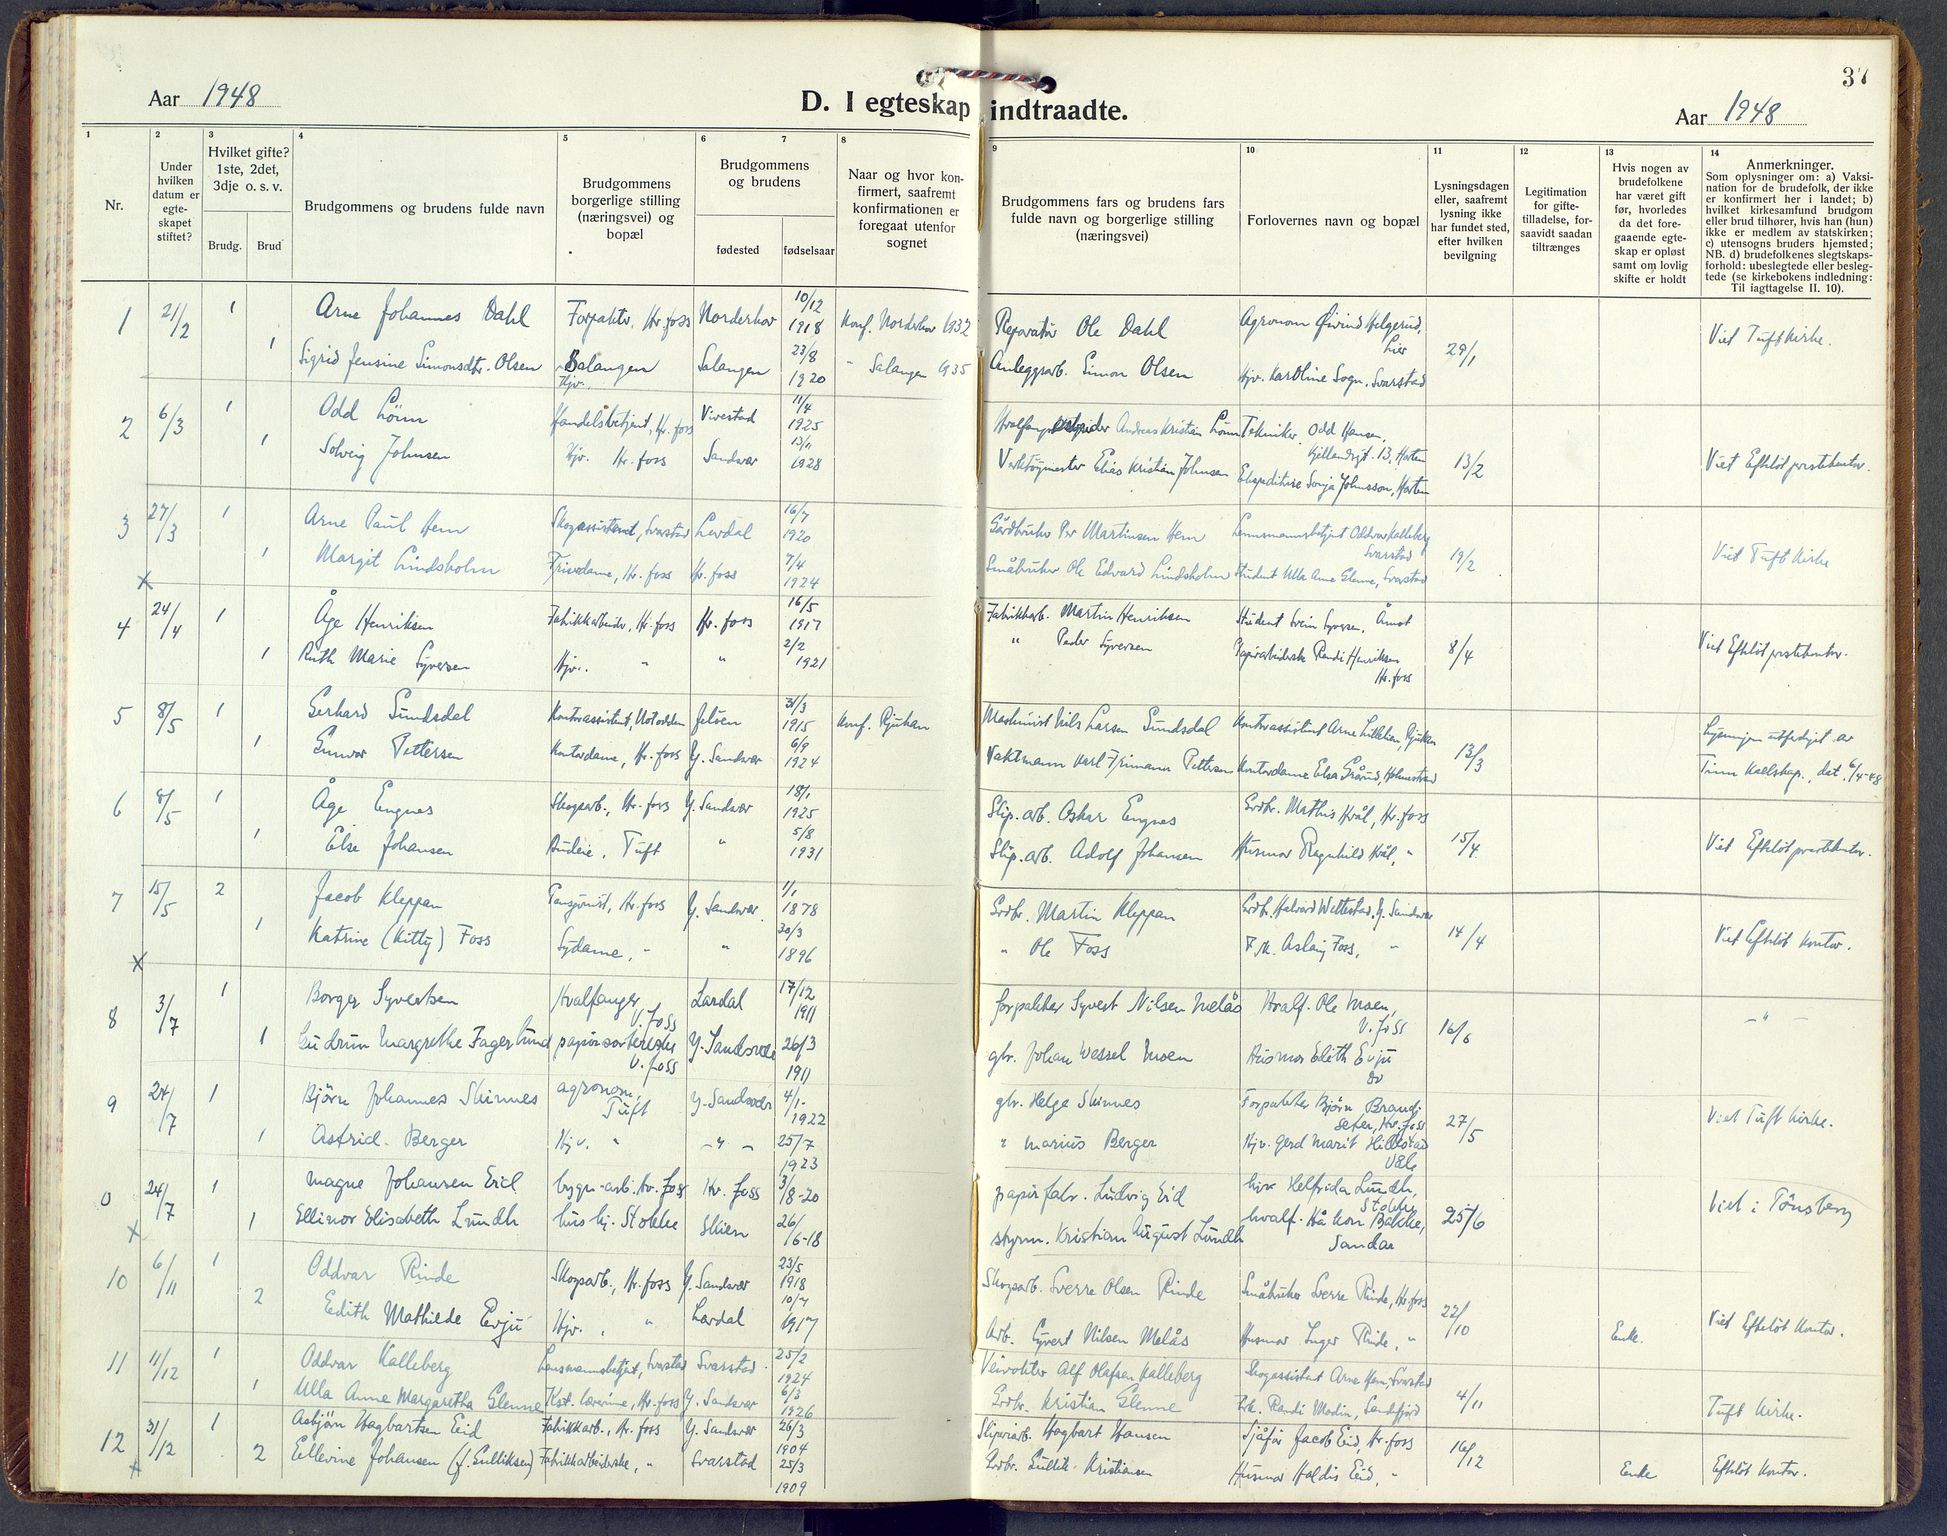 37
Aar 1948
D. I egteskap indtraadte.
Aar 1948
1
2
3
4
5
6
7
8
9
10
11
12
13
14
Nr.
Under hvilken datum er egte-skapet stiftet?
Hvilket gifte? 1ste, 2det, 3dje o. s. v.
Brudg.
Brud
Brudgommens og brudens fulde navn
Brudgommens borgerlige stilling (næringsvei) og bopæl
Brudgommens og brudens
fødested
fødselsaar
Naar og hvor kon-firmert, saafremt konfirmationen er foregaat utenfor sognet
Brudgommens fars og brudens fars fulde navn og borgerlige stilling (næringsvei)
Forlovernes navn og bopæl
Lysningsdagen eller, saafremt lysning ikke har fundet sted, efter hvilken bevilgning
Legitimation for gifte-tilladelse, for-saavidt saadan tiltrænges
Hvis nogen av brudefolkene har været gift før, hvorledes da det fore-gaaende egte-skap er opløst samt om lovlig skifte er holdt
Anmerkninger.
Som oplysninger om: a) Vaksi-nation for de brudefolk, der ikke er konfirmert her i landet; b) hvilket kirkesamfund brudgom eller brud tilhører, hvis han (hun) ikke er medlem av statskirken; c) utensogns bruders hjemsted; NB. d) brudefolkenes slegtskaps-forhold: ubeslegtede eller besleg-tede (se kirkebokens indledning: Til iagttagelse II. 10).
1 21/2 1 Arne Johannes Dahl Forpakter, Hv. foss Norderhov 10/12 1918 Konf. Norderhov 1932 Reparatør Ole Dahl Agronom Øivind Helgerud, Lier 29/1 Viet Tuft Kirke.
1 Sigrid Jensine Simonsdtr. Olsen Salangen Hjv. Salangen 23/8 1920 " Salangen 1935 Anleggsarb. Simon Olsen Hjv. Karoline Sogn, Svarstad
2 6/3 1 Odd Lönn Handelsbetjent, Hv. foss Vivestad 11/4 1925 Andreas Kristian Lönn Tekniker Odd Hansen, Kjellandsgt. 13, Horten 13/2 Viet Efteløt prestekontor.
1 Solveig Johnsen Hjv. Hv. foss Sandsvær 13/11 1928 Verktöymester Elias Kristian Johnsen Ekspeditrise Sonja Johnsson, Horten
3 27/3 1 Arne Paul Hem Skogassistent, Svarstad Lardal 16/7 1920 Gårdbruker Per Martinsen Hem Lensmannsbetjent Oddvar Kalleberg Svarstad 19/2 Viet Tuft Kirke
x 1 Margit Lindsholm Frisødame, Hv. foss Hv. foss 7/4 1924 Småbruker Ole Edvard Lindsholm Student Ulla Anne Glenne, Svarstad
4 24/4 1 Åge Henriksen Fabrikkarbeider, Hv. foss Hv. foss 16/5 1917 Fabrikkarb. Martin Henriksen Student Svein Syversen, Åmot 8/4 Viet Efteløt prestekontor.
1 Ruth Marie Syversen Hjv. " " 2/2 1921 " Peder Syversen Papirarbeiderske Randi Henriksen Hv. foss
5 8/5 1 Gerhard Sundsdal Kontorassistent, Notodden Jeløen 31/3 1915 Konf. Rjukan Maskinist Nils Larsen Sundsdal Kontorassistent Arne Lillelien, Rjukan 13/3 Lysningen utferdiget av
1 Gunvor Pettersen Kontordame, Hv. foss Y. Sandsvær 6/9 1924 Vaktmann Karl Frimann Pettersen Kontordame Elsa Grårud, Holmestrand Tinn Hellskap, dat. 6/4-48
6 8/5 1 Åge Engnes Skogsarb., Hv. foss Y. Sandsvær 18/1 1925 Slip. arb. Oskar Engnes Grdbr. Mathis Hvål, Hv. foss 15/4 Viet Efteløt prestekontor.
1 Else Johansen Budeie, Tuft " 5/8 1931 Slip. arb. Adolf Johansen Husmor Ragnhild Hvål, "
7 15/5 2 Jacob Kleppan Pensjonist, Hv. foss Y. Sandsvær 1/1 1878 Grdbr. Martin Kleppan Grdbr. Halvard Wettestad, Y. Sandsvær 14/4 Viet Efteløt Kontor.
x 1 Katrine (Kitty) Foss Sydame, " " 30/3 1896 " Ole Foss Frk. Aslaug Foss, "
8 3/7 1 Borger Syvertsen Hvalfanger V. foss Lardal 17/12 1911 forpakter Syvert Nilsen Melås Hvalf. Ole Moen, V. foss 16/6 - " -
1 Gudrun Margrethe Fagerlund papirsorterske V. foss Y. Sandsvær 26/3 1911 gbr. Johan Wessel Moen Husmor Edith Evju do
9 24/7 1 Björn Johannes Skinnes agronom, Tuft Y. Sandsvær 4/1- 1922 gbr. Helge Skinnes Forpakter Bjørn Brandi seter, Hv. foss 27/5 Viet Tuft kirke.
1 Astrid Berger Hjv. " - " - 25/7 1923 " Marius Berger Hjv. Gerd Marit Hillestad Våle
0 24/7 1 Magne Johansen Eid bygn-arb. Hv. foss Hv. foss 3/8-20 papirfabr. Ludvig Eid hjv Helfrida Lundh, Stokke 25/6 Viet i Tönsberg
x 1 Ellinor Elisabeth Lundh hush. Stokke Skien 26/6-18 styrm. Kristian August Lundh hvalf. Håkon Bakke, Sandar
10 6/11 1 Oddvar Rinde Skogsarb., Hv. foss Y. Sandsvær 23/5 1918 Skogsarb. Sverre Olsen Rinde Småbruker Sverre Rinde, Hv. foss 22/10 Viet Efteløt Kontor.
2 Edith Mathilde Evju Hjv. , " Lardal 10/7 1917 Arb. Syvert Nilsen Melås Husmor Inger Rinde, " Enke.
11 11/12 1 Oddvar Kalleberg Lensmannsbetjent, Svarstad Svarstad. 25/2 1924 Veivokter Alf Olafsen Kalleberg Skogassistent Arne Hem, Svarstad 4/11 Tuft Kirke.
1 Ulla Anne Margaretha Glenne Kst. lærerinne, Hv. foss Y. Sandsvær 6/3 1926 Grdbr. Kristian Glenne Frk. Randi Modin, Sandefjord
12 31/12 1 Asbjørn Hagbartsen Eid Fabrikkarb., Hv. foss Y. Sandsvær 26/3 1904 Sliperiarb. Hagbart Hansen Sjåfør Jacob Eid, Hv. foss 16/12 Efteløt Kontor.
x 2 Ellevine Johansen (f. Gulliksen) Fabrikkarbeiderske, " Svarstad 25/3 1909 Grdbr. Gullik Kristiansen Husmor Haldis Eid, " Enke